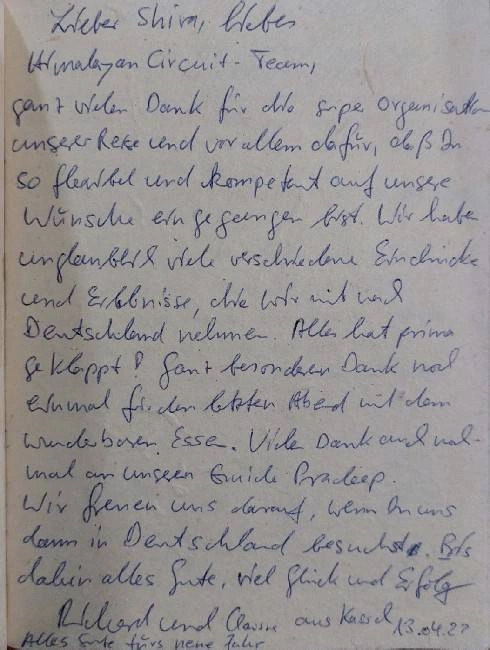 Lieber Shiva, liebes
Himalayan Circuit-Team,
ganz vielen Dank für die supe Organisation
unserer Reise und vor allem dafür, daß Du
so flexibel und kompetent auf unsere
Wünsche eingegangen bist. Wir haben
unglaublich viele verschiedene Eindrücke
und Erlebnisse, die wir mit nach
Deutschland nehmen. Alles hat prima
geklappt! Ganz besonderen Dank noch
einmal für den letzten Abend mit dem
wunderbaren Essen. Vielen Dank auch noch-
mal an unseren Guide Pradeep.
Wir freuen uns darauf, wenn Du uns
dann in Deutschland besuchst. Bis
dahin alles Gute, viel Glück und Erfolg
Richard und aus Kassel 13.04.27
Alles Gute fürs neue Jahr